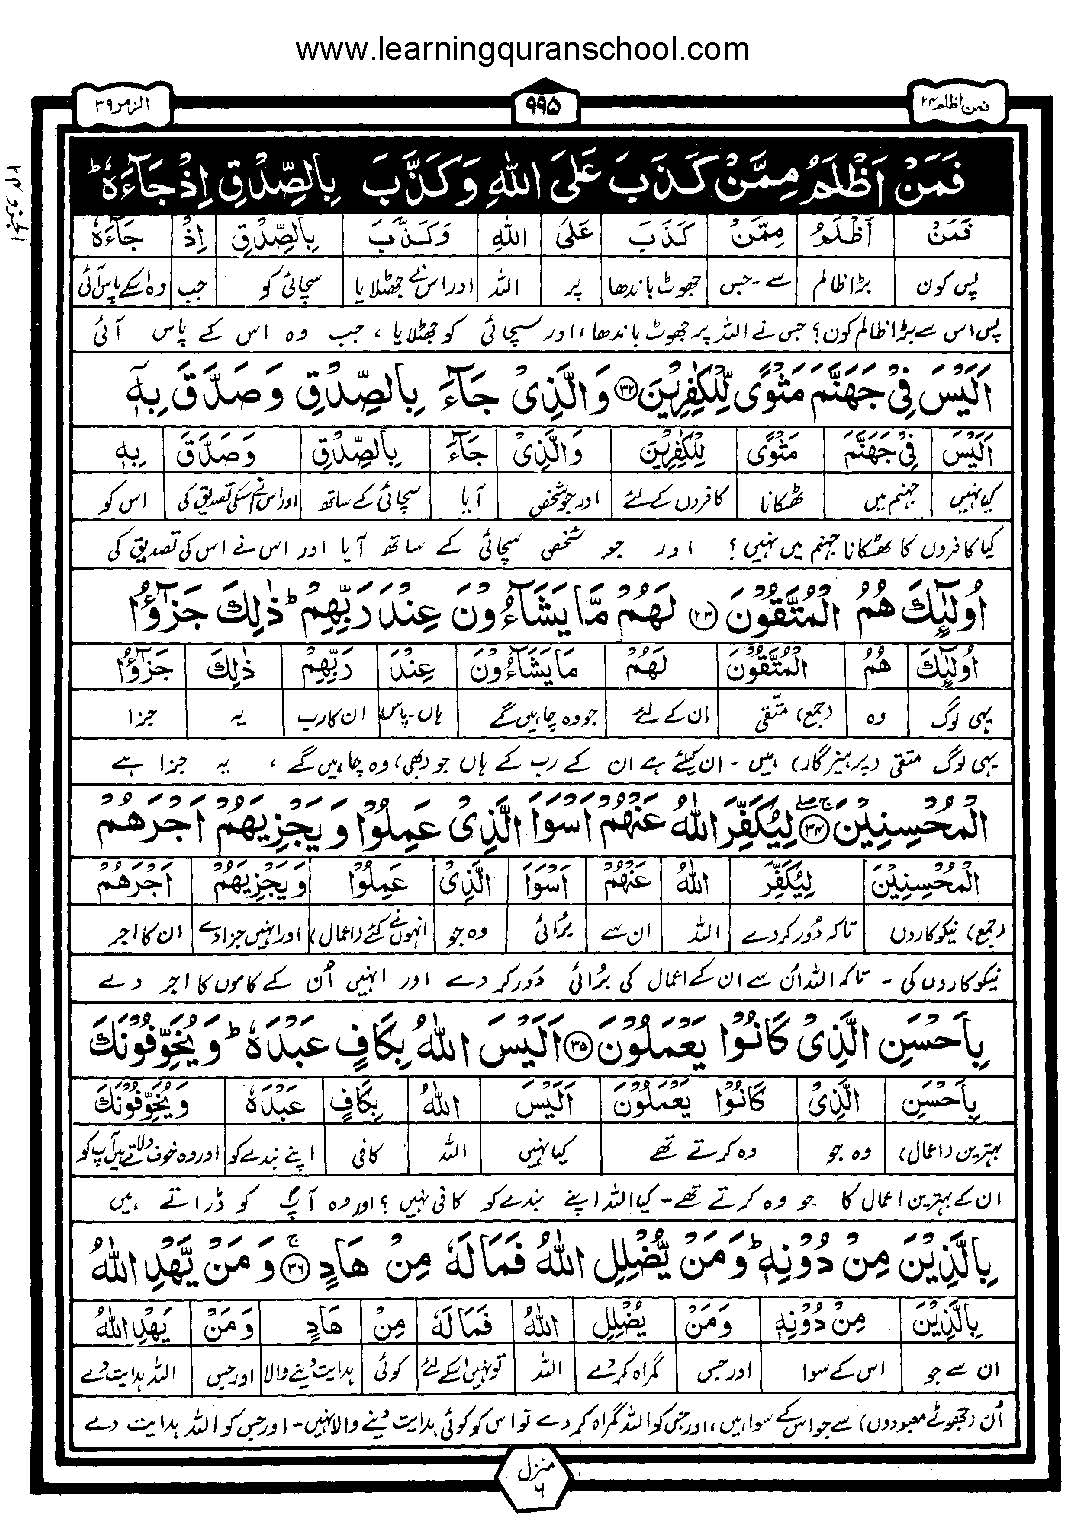 www.learningquranschool.com
فمن اظلم ۲۴
۹۹۵
الزمر ۳۹
الجزو ۲۴
فَمَنْ اَظْلَمُ مِمَّنْ كَذَبَ عَلَى اللّٰهِ وَكَذَّبَ بِالصِّدْقِ اِذْ جَآءَهٗ ؕ
فَمَنْ اَظْلَمُ مِمَّنْ كَذَبَ عَلَى اللّٰهِ وَكَذَّبَ بِالصِّدْقِ اِذْ جَآءَهٗ
پس کون بڑا ظالم سے - جس جھوٹ باندھا پر اللہ اور اس نے جھٹلایا سچائی کو جب وہ اسکے پاس آئی
پس اس سے بڑا ظالم کون؟ جس نے اللہ پر جھوٹ باندھا، اور سچائی کو جھٹلایا، جب وہ اس کے پاس آئی
اَلَيْسَ فِيْ جَهَنَّمَ مَثْوًى لِّلْكٰفِرِيْنَ ۳۲ وَالَّذِيْ جَآءَ بِالصِّدْقِ وَصَدَّقَ بِهٖٓ
اَلَيْسَ فِيْ جَهَنَّمَ مَثْوًى لِلْكٰفِرِيْنَ وَالَّذِيْ جَآءَ بِالصِّدْقِ وَصَدَّقَ بِهٖٓ
کیا نہیں جہنم میں ٹھکانا کافروں کے لئے اور جو شخص آیا سچائی کے ساتھ اور اس نے اسکی تصدیق کی اس کو
کیا کافروں کا ٹھکانا جہنم میں نہیں؟ اور جو شخص سچائی کے ساتھ آیا اور اس نے اس کی تصدیق کی
اُولٰٓئِكَ هُمُ الْمُتَّقُوْنَ ۳۳ لَهُمْ مَّا يَشَآءُوْنَ عِنْدَ رَبِّهِمْ ؕ ذٰلِكَ جَزٰٓؤُا
اُولٰٓئِكَ هُمُ الْمُتَّقُوْنَ لَهُمْ مَا يَشَآءُوْنَ عِنْدَ رَبِّهِمْ ذٰلِكَ جَزٰٓؤُا
یہی لوگ وہ (جمع) متقی ان کے لئے جو وہ چاہیں گے ہاں-پاس ان کا رب یہ جزا
یہی لوگ متقی (پرہیزگار) ہیں - ان کیلئے ہے ان کے رب کے ہاں جو (بھی) وہ چاہیں گے، یہ جزا ہے
الْمُحْسِنِيْنَ ۳۴ لِيُكَفِّرَ اللّٰهُ عَنْهُمْ اَسْوَاَ الَّذِيْ عَمِلُوْا وَيَجْزِيَهُمْ اَجْرَهُمْ
الْمُحْسِنِيْنَ لِيُكَفِّرَ اللّٰهُ عَنْهُمْ اَسْوَاَ الَّذِيْ عَمِلُوْا وَيَجْزِيَهُمْ اَجْرَهُمْ
(جمع) نیکوکاروں تاکہ دور کردے اللہ ان سے برائی وہ جو انہوں نے کئے (اعمال) اور انہیں جزا دے ان کا اجر
نیکوکاروں کی - تاکہ اللہ ان سے ان کے اعمال کی برائی دور کردے اور انہیں اُن کے کاموں کا اجر دے
بِاَحْسَنِ الَّذِيْ كَانُوْا يَعْمَلُوْنَ ۳۵ اَلَيْسَ اللّٰهُ بِكَافٍ عَبْدَهٗ ؕ وَيُخَوِّفُوْنَكَ
بِاَحْسَنِ الَّذِيْ كَانُوْا يَعْمَلُوْنَ اَلَيْسَ اللّٰهُ بِكَافٍ عَبْدَهٗ وَيُخَوِّفُوْنَكَ
بہترین (اعمال) وہ جو وہ کرتے تھے کیا نہیں اللہ کافی اپنے بندے کو اور وہ خوف دلاتے ہیں آپ کو
ان کے بہترین اعمال کا جو وہ کرتے تھے - کیا اللہ اپنے بندے کو کافی نہیں؟ اور وہ آپ کو ڈراتے ہیں
بِالَّذِيْنَ مِنْ دُوْنِهٖ ؕ وَمَنْ يُّضْلِلِ اللّٰهُ فَمَا لَهٗ مِنْ هَادٍ ۳۶ وَمَنْ يَّهْدِ اللّٰهُ
بِالَّذِيْنَ مِنْ دُوْنِهٖ وَمَنْ يُضْلِلِ اللّٰهُ فَمَا لَهٗ مِنْ هَادٍ وَمَنْ يَهْدِ اللّٰهُ
ان سے جو اس کے سوا اور جس گمراہ کردے اللہ تو نہیں اسکے لئے کوئی ہدایت دینے والا اور جس اللہ ہدایت دے
اُن (جھوٹے معبودوں) سے جو اس کے سوا ہیں، اور جس کو اللہ گمراہ کردے تو اس کو کوئی ہدایت دینے والا نہیں - اور جس کو اللہ ہدایت دے
منزل ۶